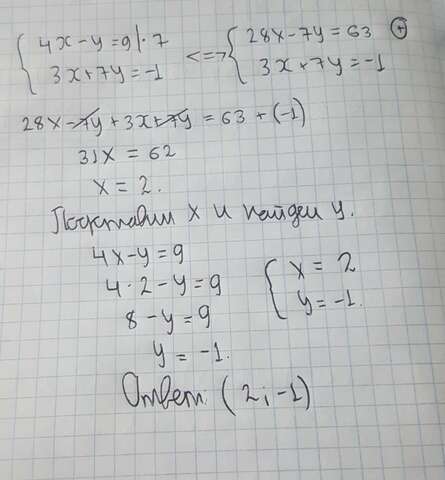 { 4x - y = 9 | · 7
3x + 7y = -1
<=> { 28x - 7y = 63 ⊕
3x + 7y = -1
28x - 7y + 3x + 7y = 63 + (-1)
31x = 62
x = 2.
Подставим x и найдем y.
4x - y = 9
4 · 2 - y = 9
8 - y = 9
y = -1.
{ x = 2
y = -1.
Ответ: (2; -1)